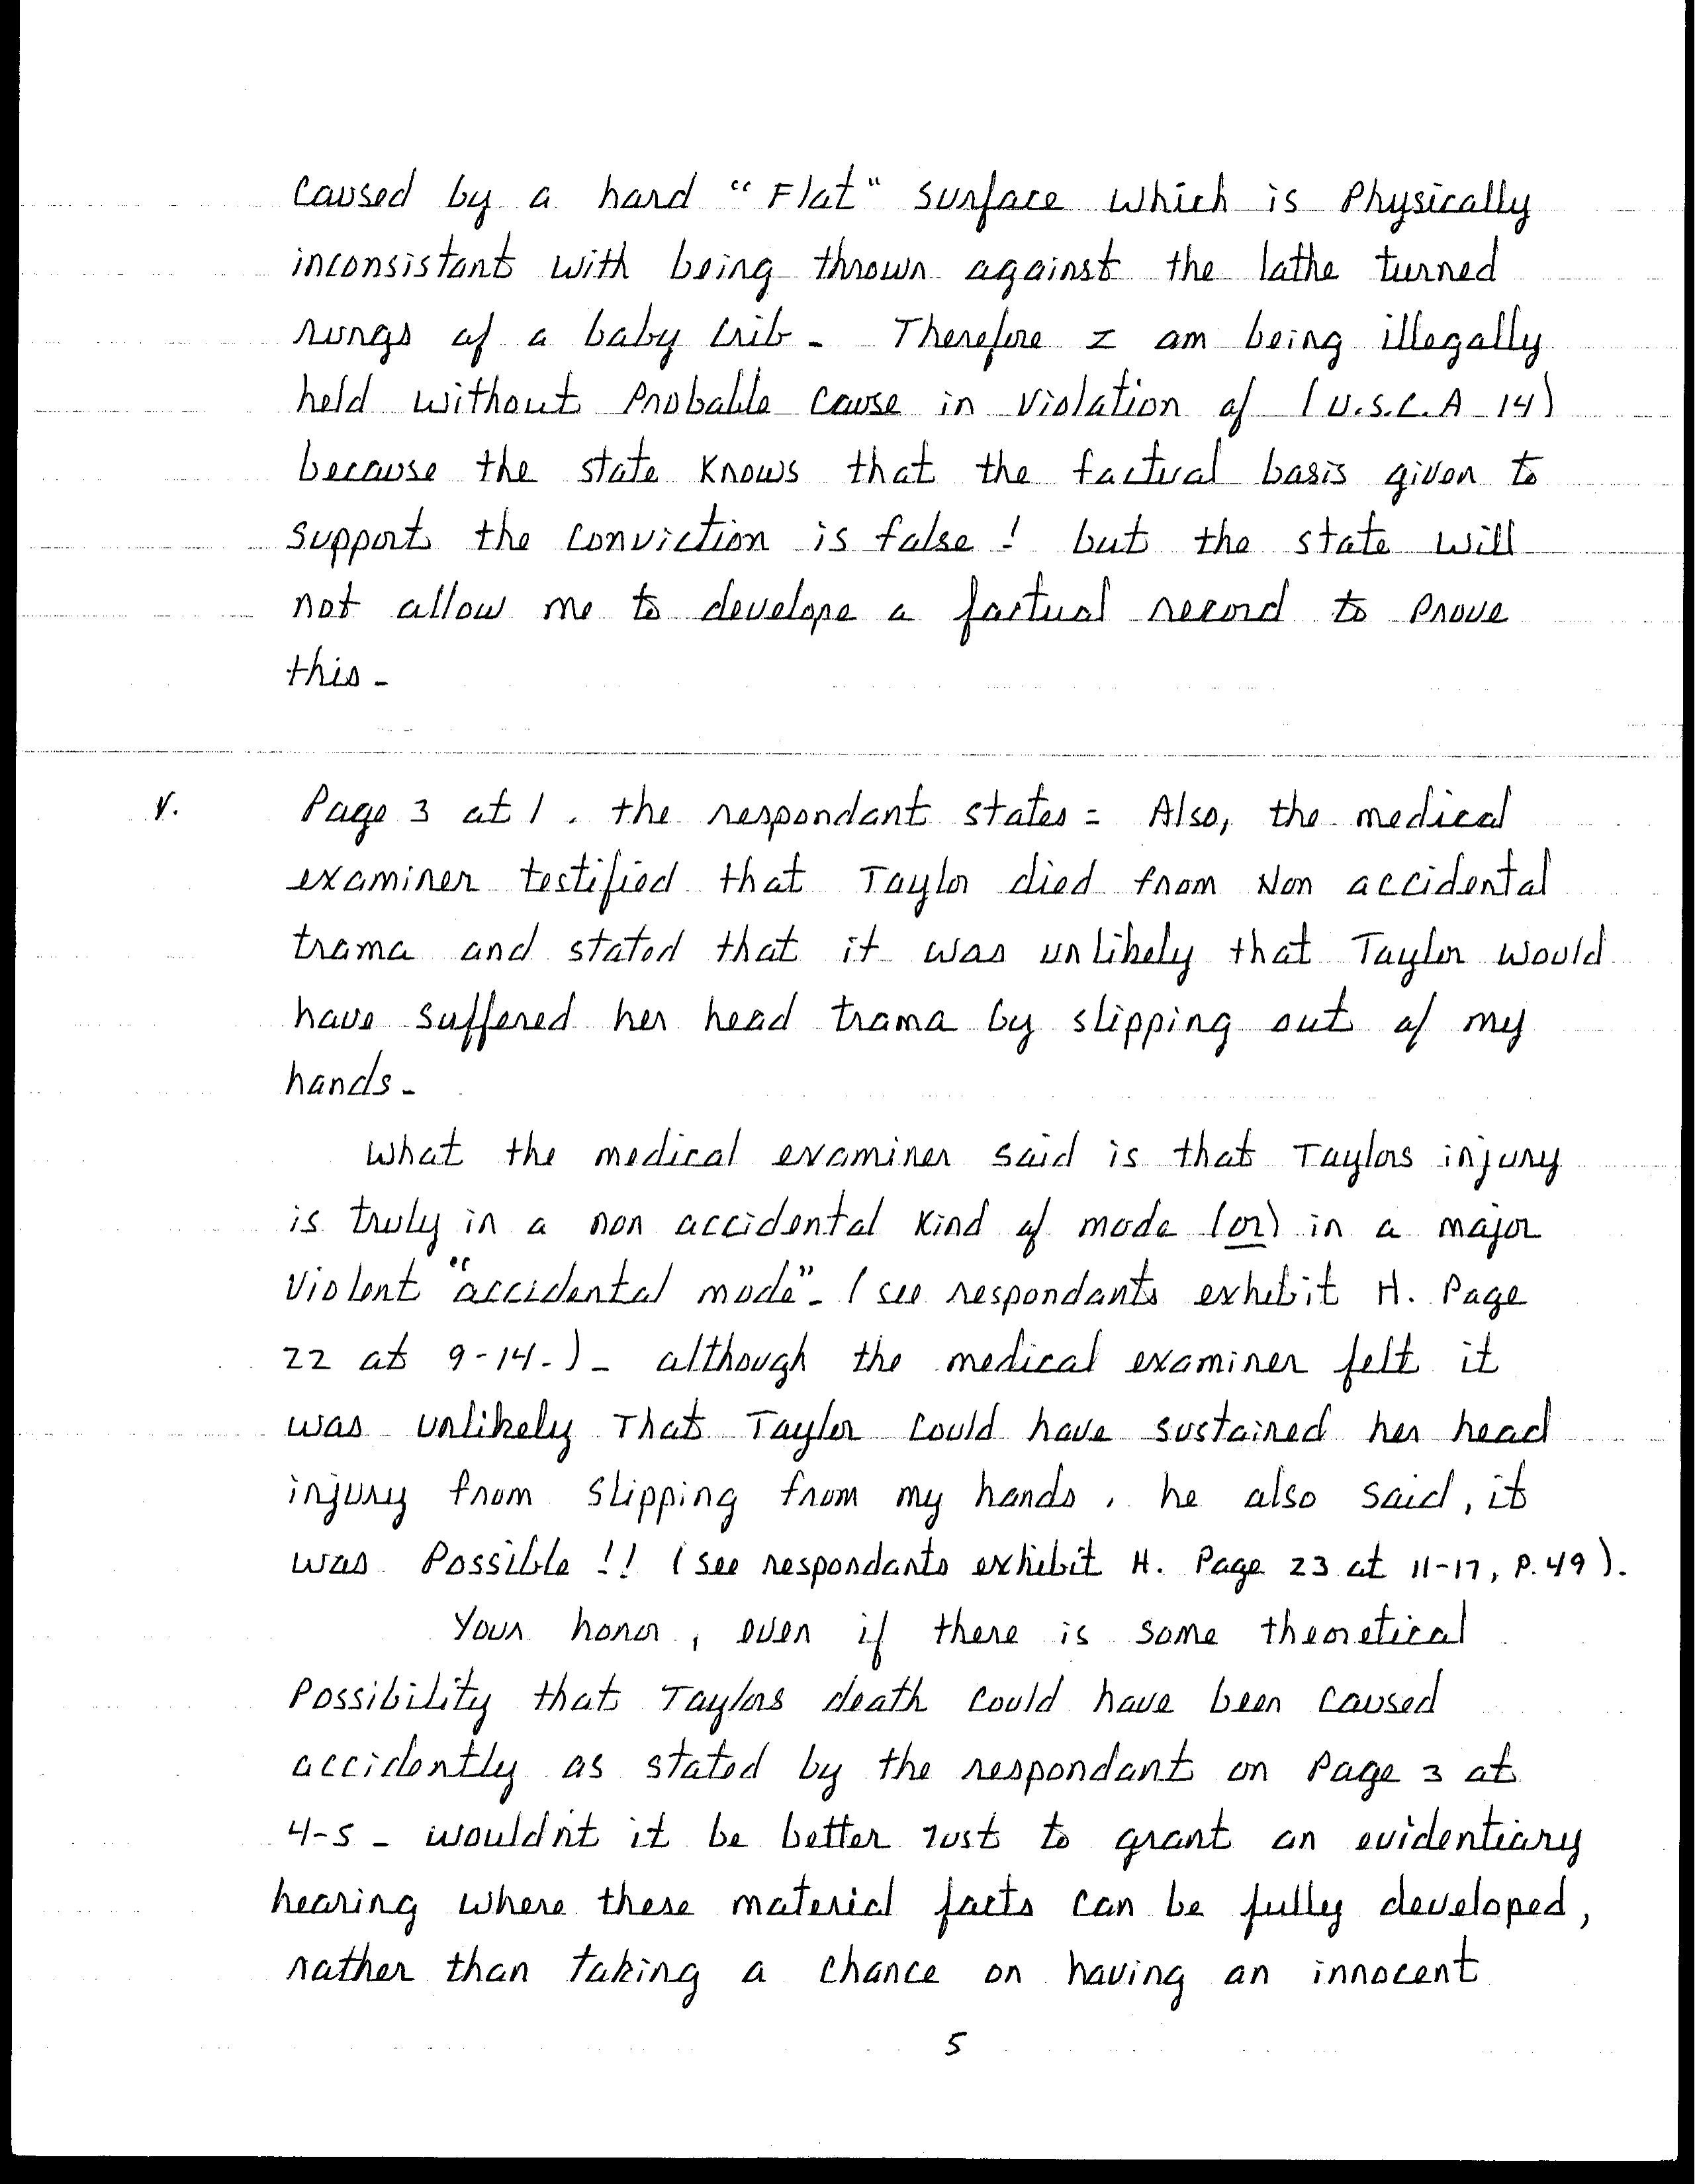 caused by a hard "Flat" surface which is Physically
inconsistant with being thrown against the lathe turned
rungs of a baby crib. Therefore I am being illegally
held without Probable cause in violation of (U.S.C.A 14)
because the state knows that the factual basis given to
support the conviction is false! but the state will
not allow me to develope a factual record to Prove
this.
V. Page 3 at 1. the respondant states = Also, the medical
examiner testified that Taylor died from Non accidental
trama and stated that it was unlikely that Taylor would
have suffered her head trama by slipping out of my
hands.
What the medical examiner said is that Taylors injury
is truly in a non accidental kind of mode (or) in a major
violent "accidental mode". (see respondants exhibit H. Page
22 at 9-14.). although the medical examiner felt it
was unlikely That Taylor could have sustained her head
injury from slipping from my hands, he also said, it
was Possible!! (see respondants exhibit H. Page 23 at 11-17, P.49).
Your honor, even if there is some theoretical
Possibility that Taylors death could have been caused
accidently as stated by the respondant on Page 3 at
4-5. wouldn't it be better Just to grant an evidentiary
hearing where these material facts can be fully developed,
rather than taking a chance on having an innocent
5